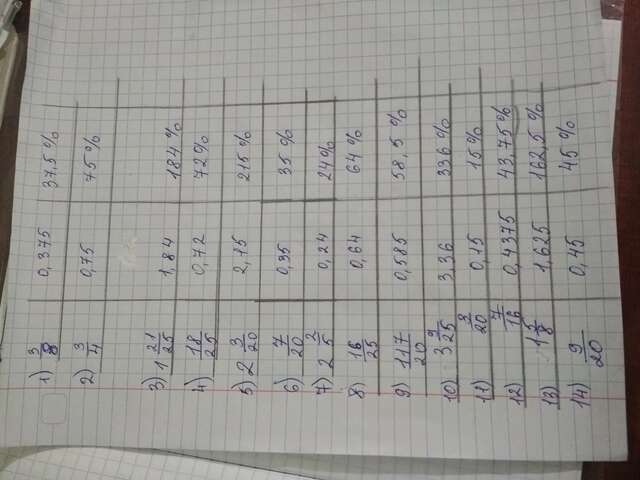 1) 3/8 0,375 37,5%
2) 3/4 0,75 75%
3) 1 21/25 1,84 184%
4) 18/25 0,72 72%
5) 2 3/20 2,15 215%
6) 7/20 0,35 35%
7) 2 2/5 0,24 24%
8) 16/25 0,64 64%
9) 117/20 0,585 58,5%
10) 3 9/25 3,36 336%
11) 3/20 0,15 15%
12) 7/16 0,4375 43,75%
13) 1 5/8 1,625 162,5%
14) 9/20 0,45 45%